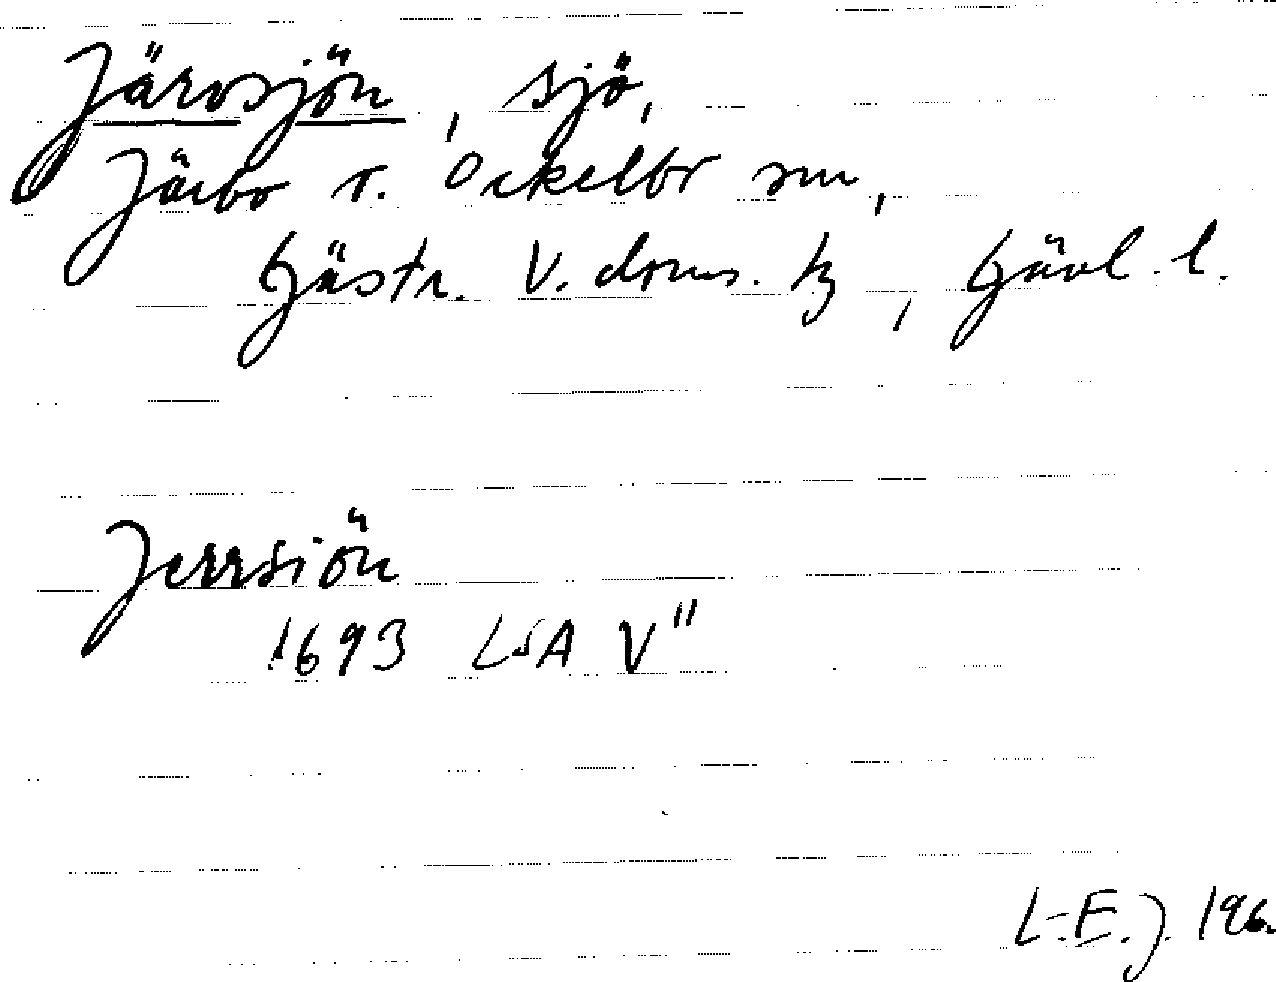 Järvsjön, sjö,
Järbo o. Ockelbo snr,
Gästr. V. doms. h, Gävl. l.
Jerrsiön
1693 LSA V"
L-E. J. 196.